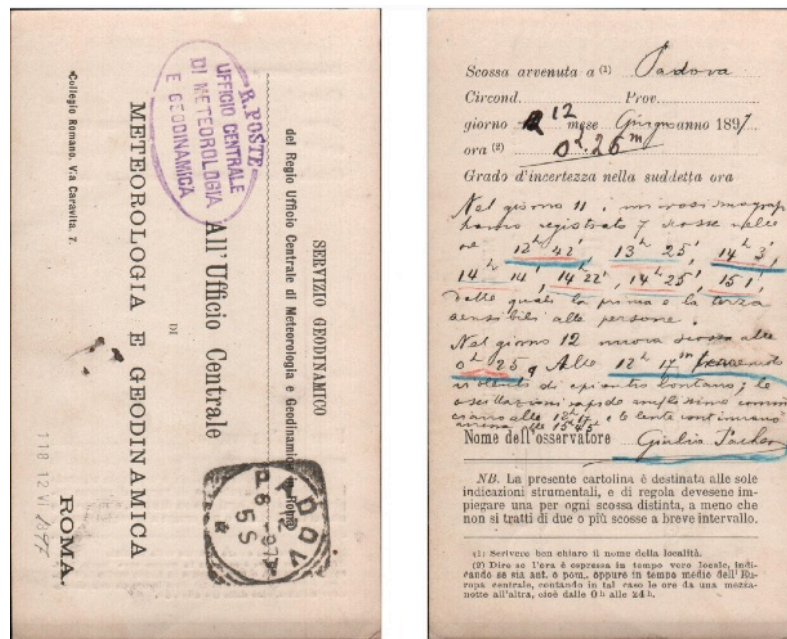 R. POSTE
UFFICIO CENTRALE
DI METEOROLOGIA
E GEODINAMICA
SERVIZIO GEODINAMICO
del Regio Ufficio Centrale di Meteorologia e Geodinamica in Roma
All'Ufficio Centrale
DI
METEOROLOGIA E GEODINAMICA
ROMA.
Collegio Romano, Via Caravita, 7.
118 12 VI 1897
Scossa avvenuta a (1) Padova
Circond. Prov.
giorno 12 mese Giugno anno 1897
ora (2) 0h.25m
Grado d'incertezza nella suddetta ora
Nel giorno 11 i microsismografi
hanno registrato 7 scosse nelle
ore 12h 42', 13h 25', 14h 3',
14h 14', 14h 22', 14h 25', 15h 1',
delle quali la prima e la terza
sensibili alle persone.
Nel giorno 12 nuova scossa alle
0h 25. Alle 12h 17m
di epicentro lontano; le
oscillazioni rapide
ciano alle 12h 17 e le lente continuano
alle 15h 45m
Nome dell'osservatore Giulio Pacher
NB. La presente cartolina è destinata alle sole
indicazioni strumentali, e di regola devesene im-
piegare una per ogni scossa distinta, a meno che
non si tratti di due o più scosse a breve intervallo.
(1) Scrivere ben chiaro il nome della località.
(2) Dire se l'ora è espressa in tempo vero locale, indi-
cando se sia ant. o pom., oppure in tempo medio dell'Eu-
ropa centrale, contando in tal caso le ore da una mezza-
notte all'altra, cioè dalle 0 h alle 24 h.